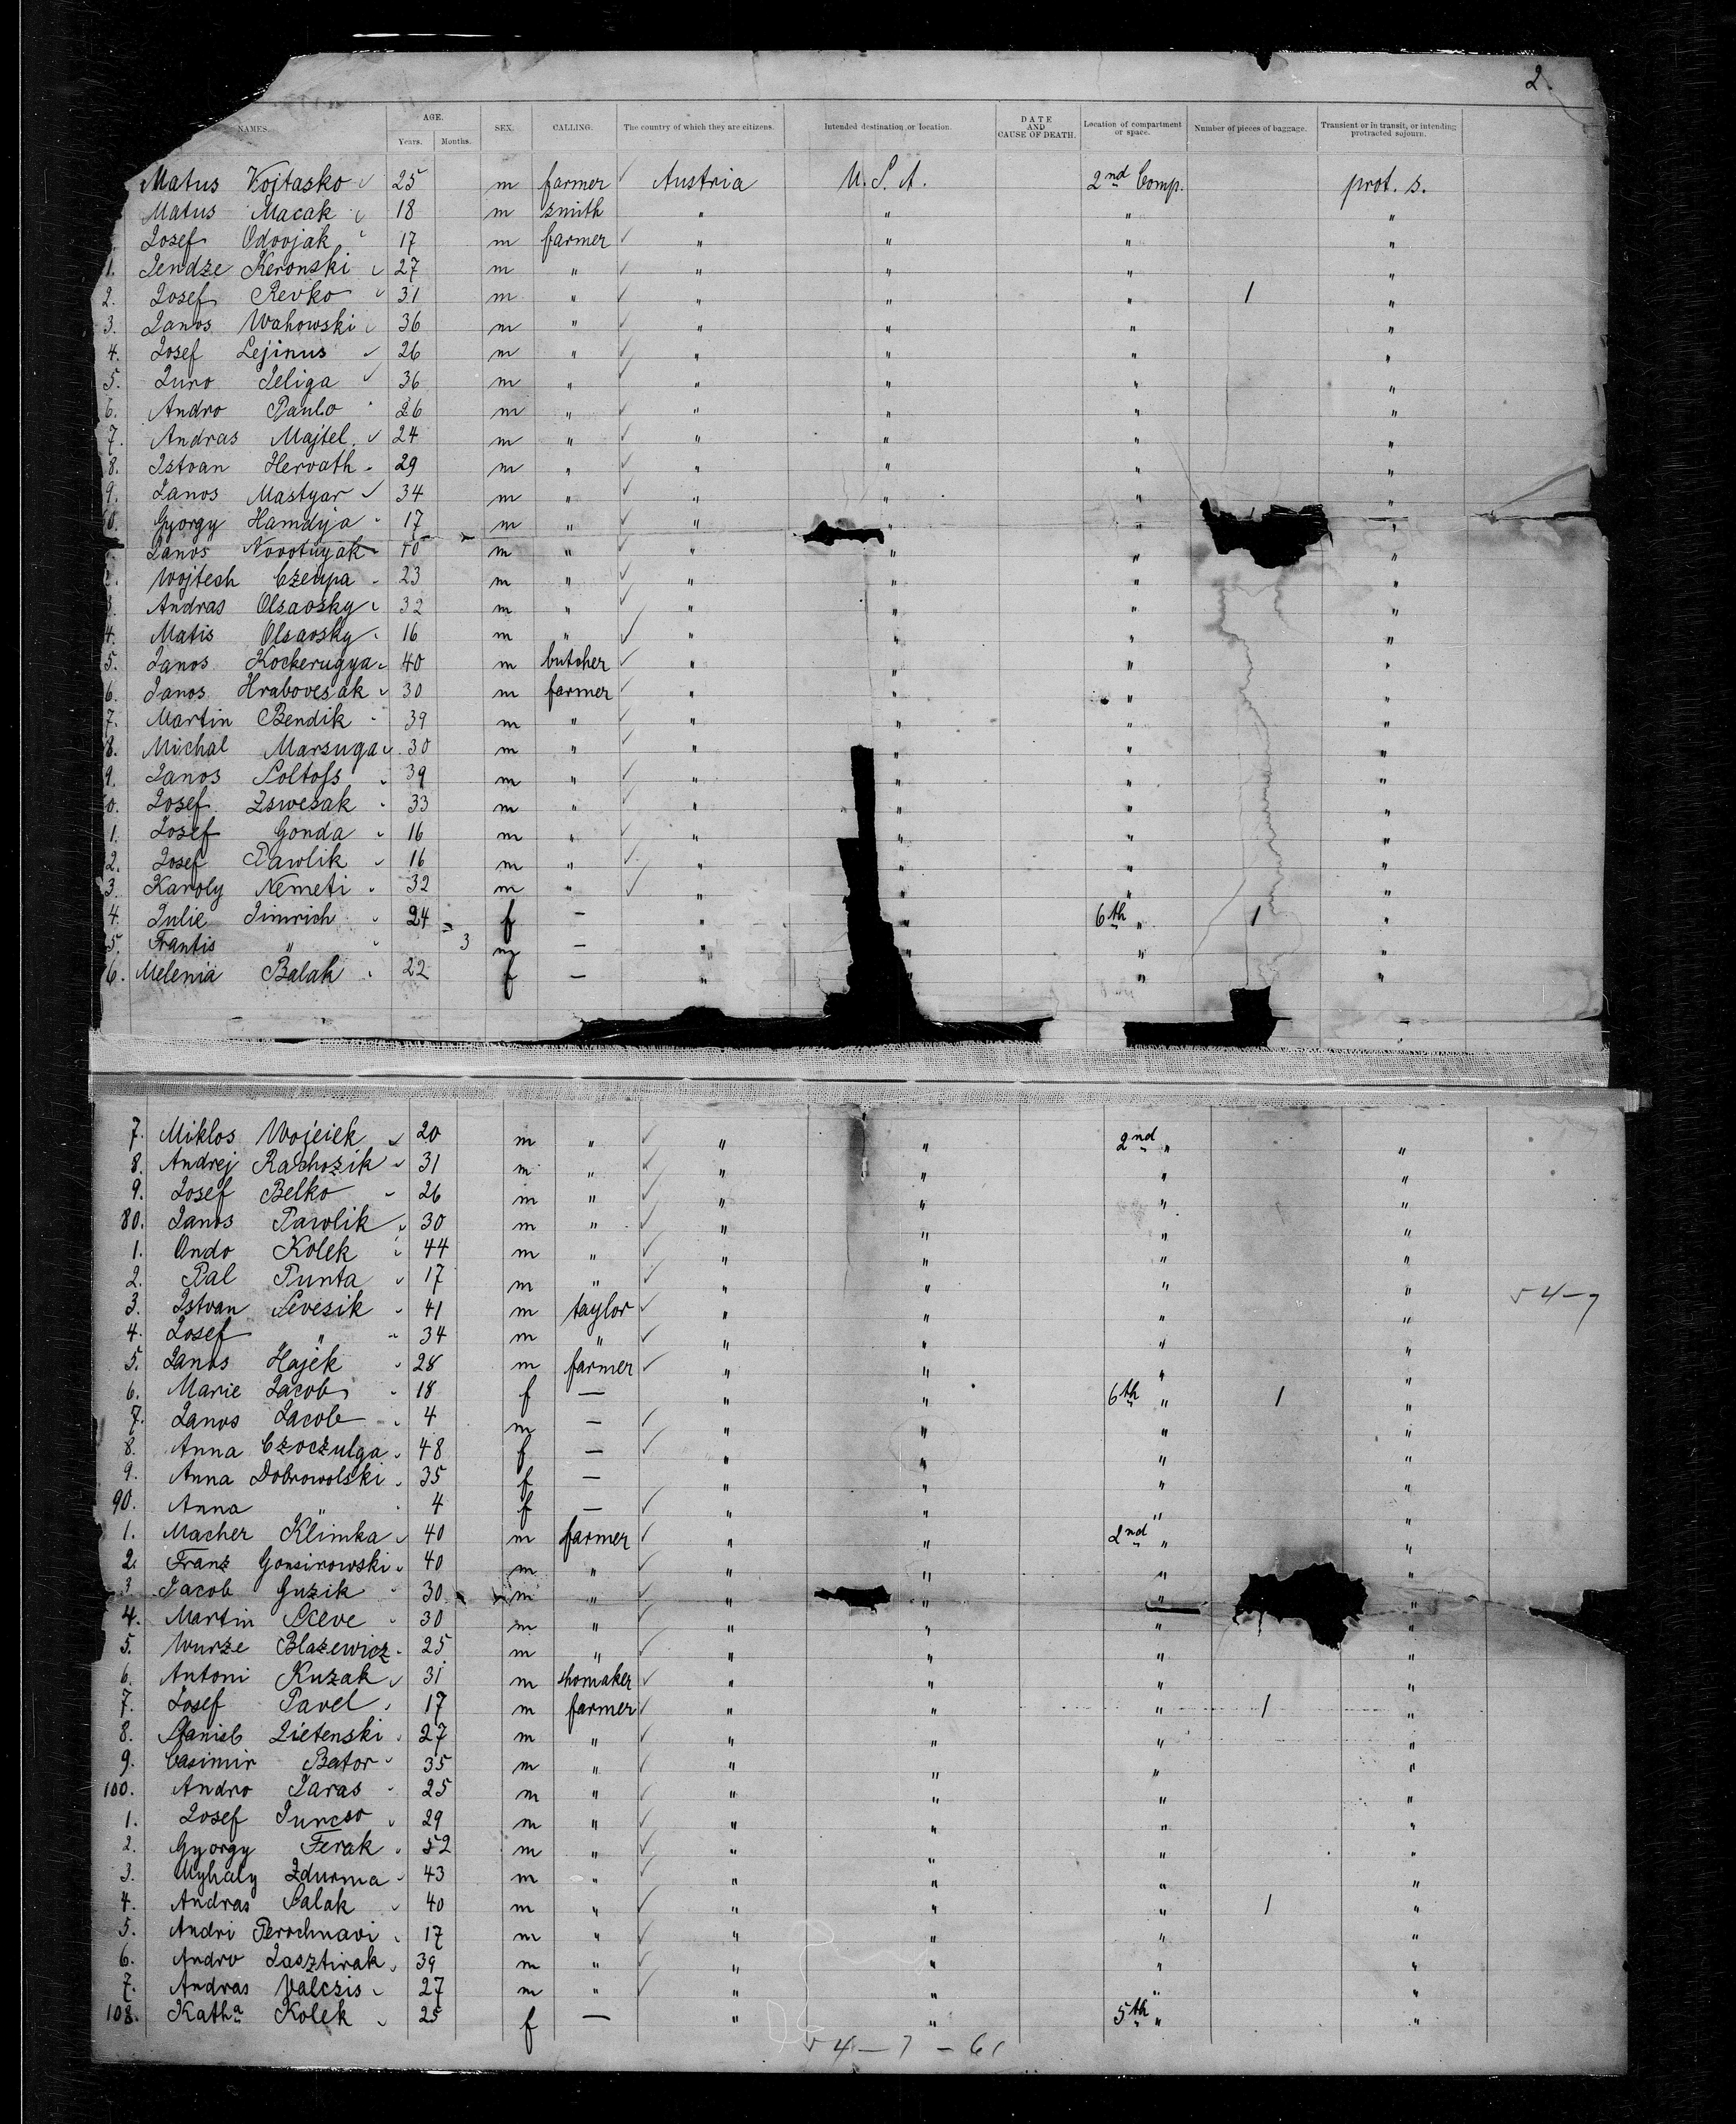 2.
NAMES. AGE. Years. Months. SEX. CALLING. The country of which they are citizens. Intended destination or location. DATE AND CAUSE OF DEATH. Location of compartment or space. Number of pieces of baggage. Transient or in transit, or intending protracted sojourn.
Matus Vojtasko 25 m farmer ✓ Austria U. S. A. 2nd Comp. prot. s.
Matus Macak 18 m smith " " " "
Josef Odvojak 17 m farmer ✓ " " " "
1. Jendze Keronski 27 m " ✓ " " " "
2. Josef Revko 31 m " ✓ " " " 1 "
3. Janos Wahowski 36 m " ✓ " " " "
4. Josef Lejinus 26 m " ✓ " " " "
5. Juro Jeliga 36 m " ✓ " " " "
6. Andro Paulo 26 m " ✓ " " " "
7. Andras Majtel 24 m " ✓ " " " "
8. Istvan Hervath 29 m " ✓ " " " "
9. Janos Mastyar 34 m " ✓ " " " "
0. Gyorgy Hamdija 17 m " ✓ " " " "
Janos Novotnyak 40 m " ✓ " " " "
2. Wojtech Czeupa 23 m " ✓ " " " "
3. Andras Olsavsky 32 m " ✓ " " " "
4. Matis Olsavsky 16 m " ✓ " " " "
5. Janos Kockerugya 40 m butcher ✓ " " " "
6. Janos Hrabovesak 30 m farmer ✓ " " " "
7. Martin Bendik 39 m " ✓ " " " "
8. Michal Marsuga 30 m " ✓ " " " "
9. Janos Soltoss 39 m " ✓ " " " "
0. Josef Zswesak 33 m " ✓ " " " "
1. Josef Gonda 16 m " ✓ " " " "
2. Josef Pawlik 16 m " ✓ " " " "
3. Karoly Nemeti 32 m " ✓ " " " "
4. Julie Jimrich 24 f — " " 6th " 1 "
5. Frantis " 3 m — " " " "
6. Melenia Balak 22 f — " " " "
7. Miklos Wojciek 20 m " ✓ " " 2nd " "
8. Andrej Rachozik 31 m " ✓ " " " "
9. Josef Belko 26 m " ✓ " " " "
80. Janos Pawlik 30 m " ✓ " " " "
1. Ondo Kolek 44 m " ✓ " " " "
2. Pal Punta 17 m " ✓ " " " "
3. Istvan Sevesik 41 m taylor ✓ " " " "
4. Josef " 34 m " ✓ " " " "
5. Janos Hajek 28 m farmer ✓ " " " "
6. Marie Jacob 18 f — " " 6th " 1 "
7. Janos Jacob 4 m — ✓ " " " "
8. Anna Czoczulga 48 f — ✓ " " " "
9. Anna Dobrowolski 35 f — " " " "
90. Anna " 4 f — ✓ " " " "
1. Macher Klimka 40 m farmer ✓ " " 2nd " "
2. Franz Gonsirowski 40 m " ✓ " " " "
3 Jacob Guzik 30 m " ✓ " " " "
4. Martin Sleve 30 m " ✓ " " " "
5. Wurze Blazewicz 25 m " ✓ " " " "
6. Antoni Kuzak 31 m shomaker ✓ " " " "
7. Josef Pavel 17 m farmer ✓ " " " 1 "
8. Stanisl Zietenski 27 m " ✓ " " " "
9. Casimir Bator 35 m " ✓ " " " "
100. Andro Jaras 25 m " ✓ " " " "
1. Josef Juncso 29 m " ✓ " " " "
2. Gyorgy Ferak 52 m " ✓ " " " "
3. Myhaly Zdurma 43 m " ✓ " " " "
4. Andras Salak 40 m " ✓ " " " 1 "
5. Andri Perochnavi 17 m " ✓ " " " "
6. Andro Jasztirak 39 m " ✓ " " " "
7. Andras Valczis 27 m " ✓ " " " "
108. Katha Kolek 25 f — " " 5th " "